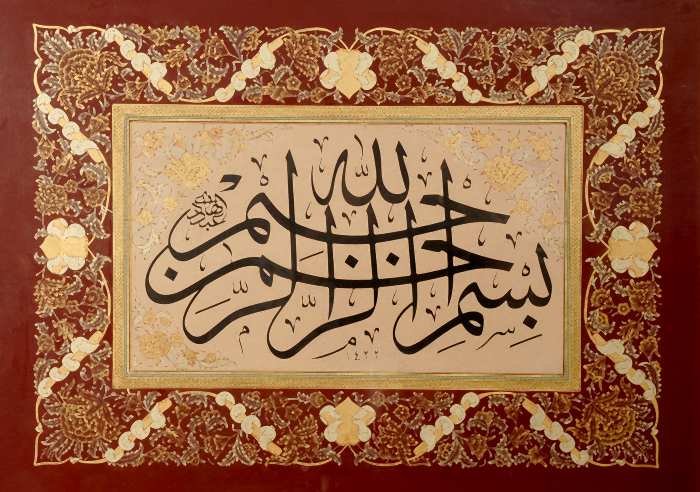 بِسْمِ اللهِ الرَّحْمٰنِ الرَّحِيمِ
١٤٢٢